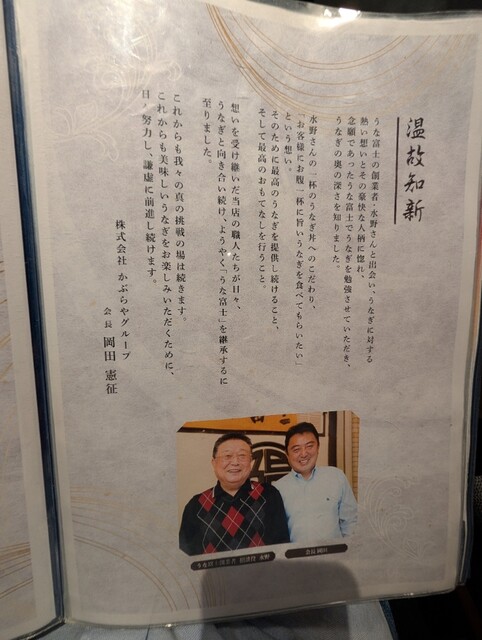 温故知新
うな富士の創業者・水野さんと出会い、うなぎに対する
熱い想いとその豪快な人柄に惚れ、
念願であったうな富士でうなぎを勉強させていただき、
うなぎの奥の深さを知りました。
水野さんの一杯のうなぎ丼へのこだわり、
「お客様にお腹一杯に旨いうなぎを食べてもらいたい」
という想い。
そのために最高のうなぎを提供し続けること、
そして最高のおもてなしを行うこと。
想いを受け継いだ当店の職人たちが日々、
うなぎと向き合い続け、ようやく「うな富士」を継承するに
至りました。
これからも我々の真の挑戦の場は続きます。
これからも美味しいうなぎをお楽しみいただくために、
日々努力し、謙虚に前進し続けます。
株式会社 かぶらやグループ
会長 岡田 憲征
うな富士創業者 水野
会長 岡田